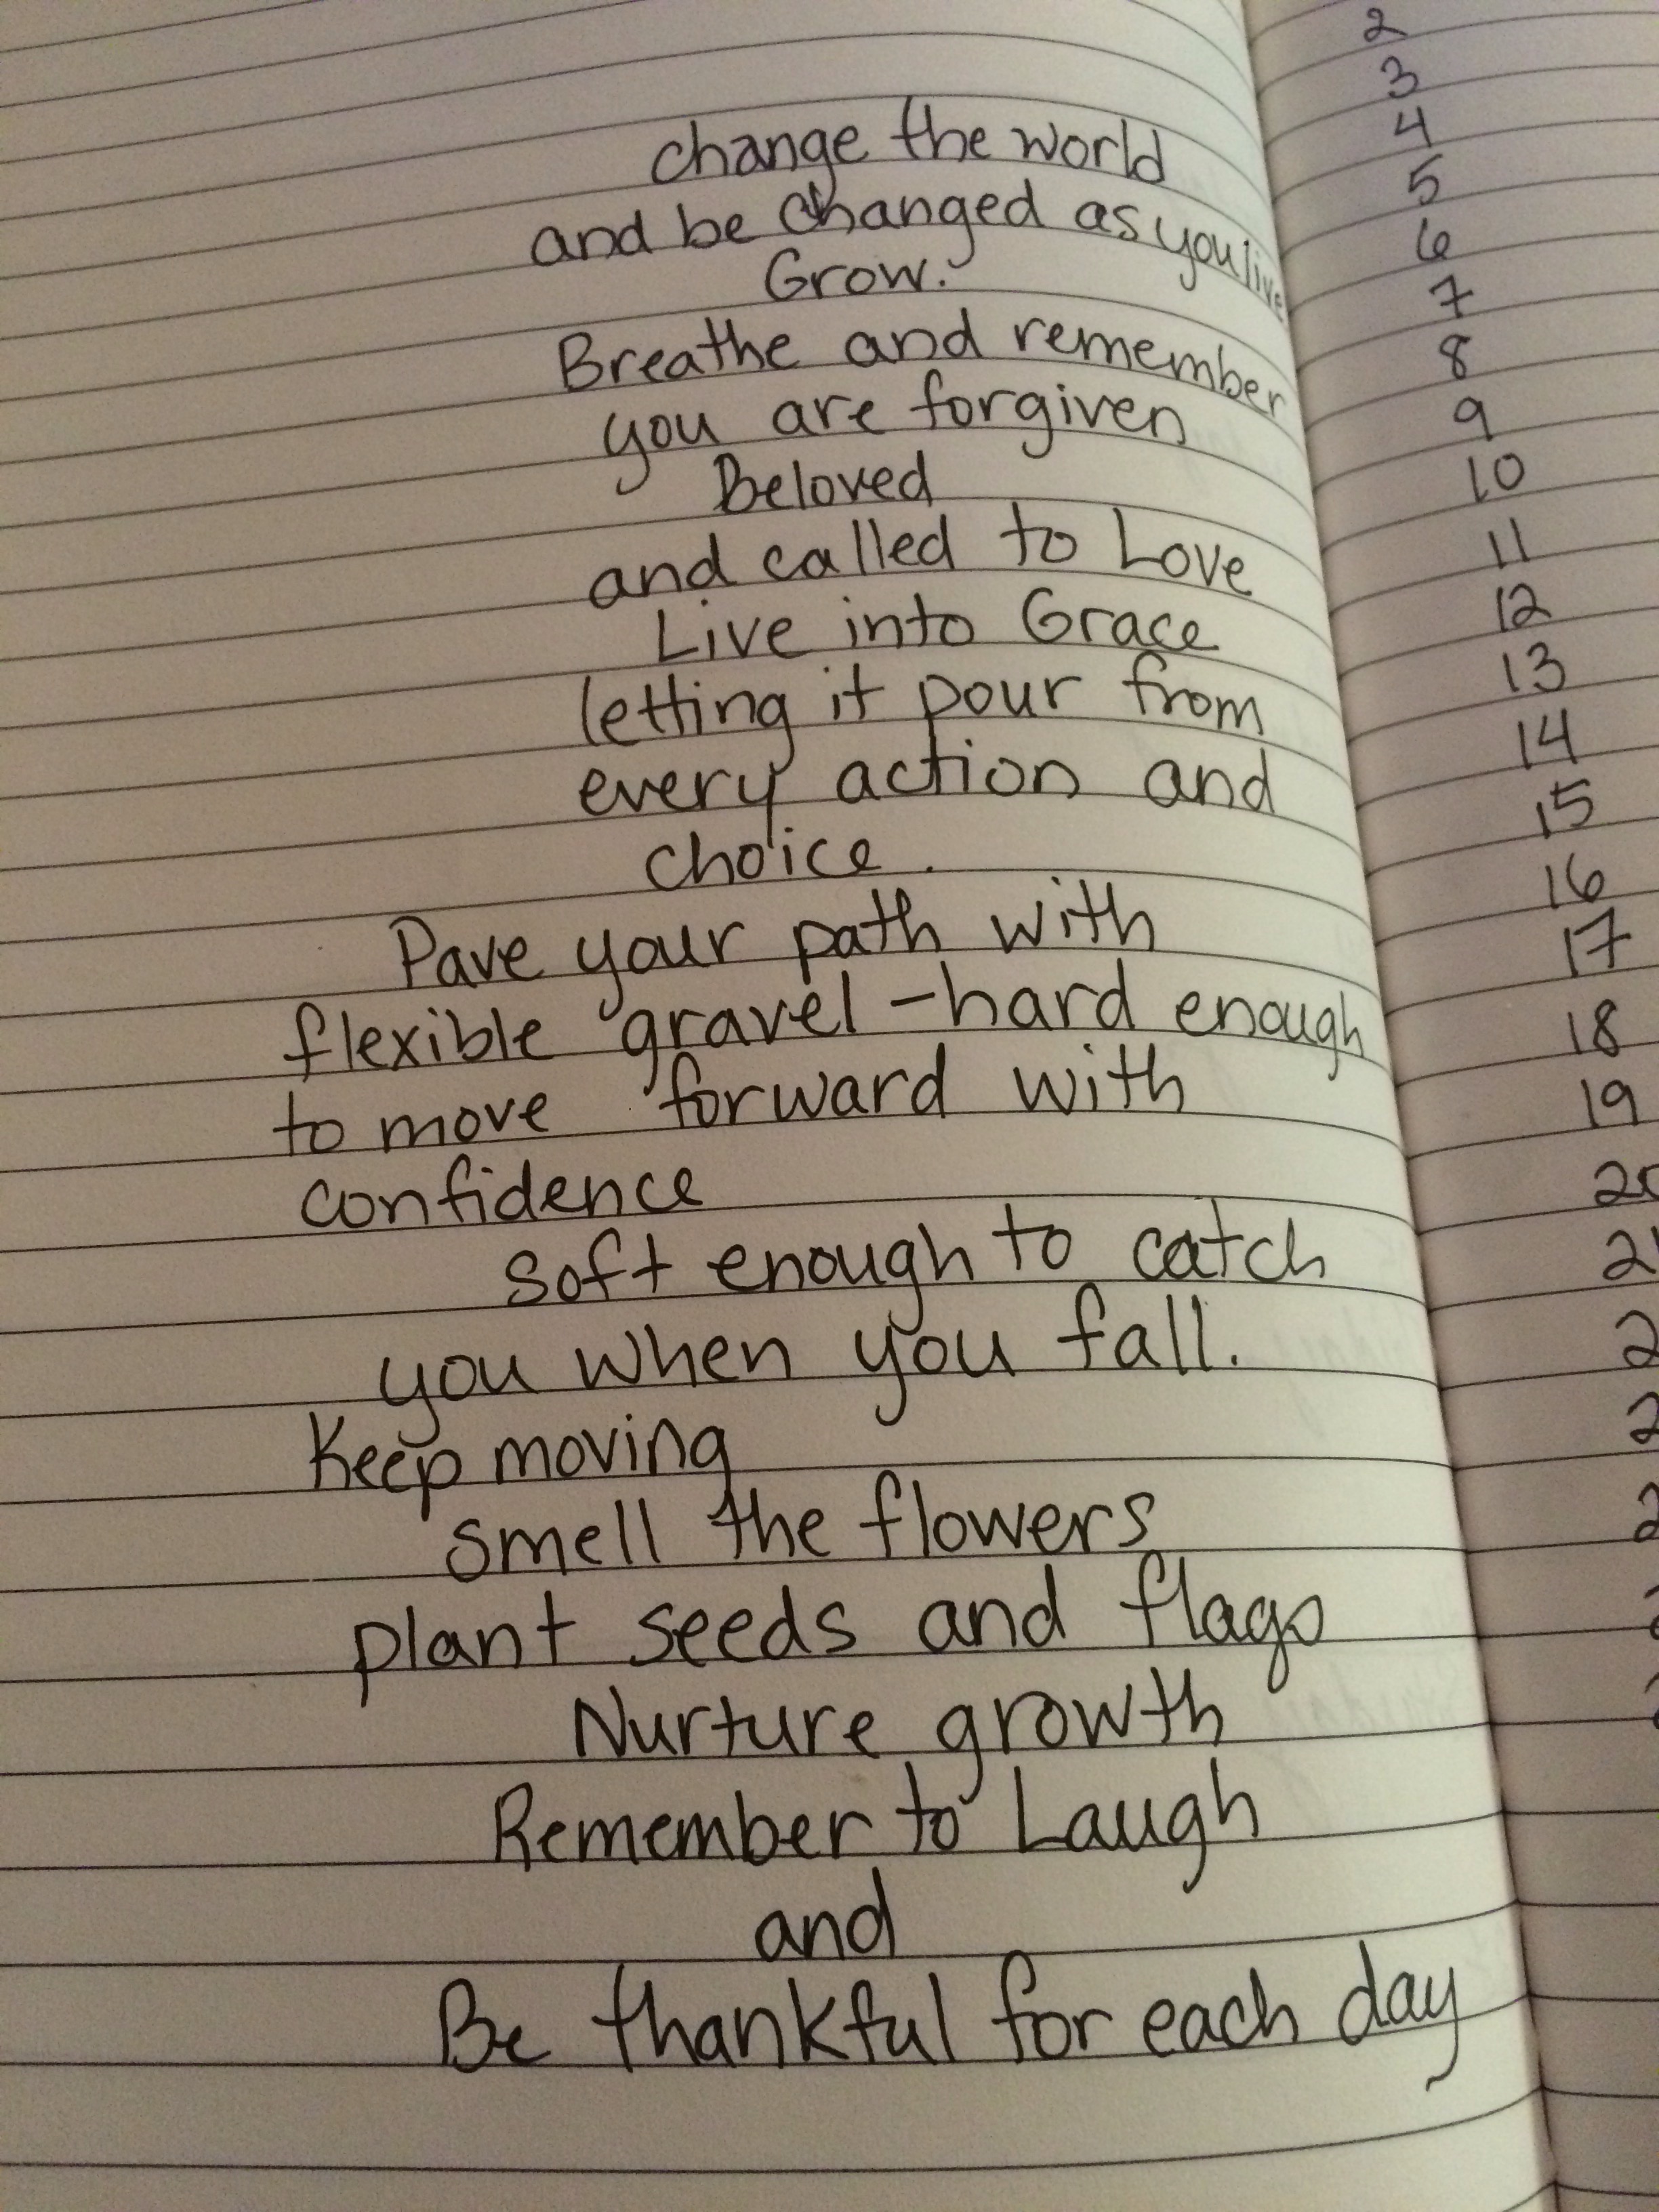 change the world
and be changed as you live
Grow.
Breathe and remember
you are forgiven
Beloved
and called to Love
Live into Grace
letting it pour from
every action and
choice.
Pave your path with
flexible gravel - hard enough
to move forward with
confidence
soft enough to catch
you when you fall.
Keep moving
smell the flowers
plant seeds and flags
Nurture growth
Remember to Laugh
and
Be thankful for each day
2
3
4
5
6
7
8
9
10
11
12
13
14
15
16
17
18
19
20
21
2
2
2